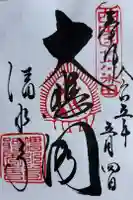 奉拝
令和五年
五月四日
大悲閣
清水寺